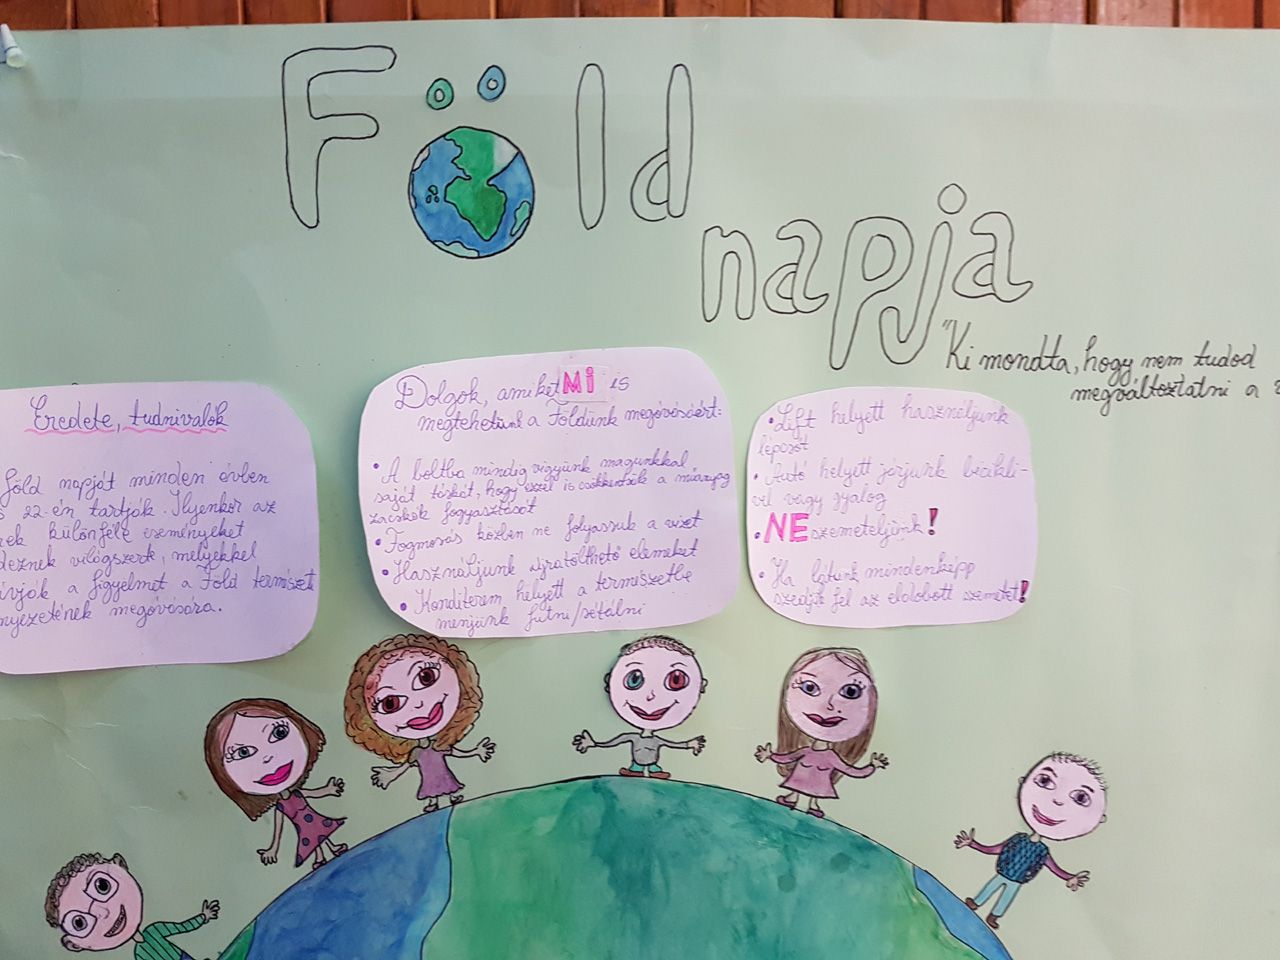 Föld
napja
"Ki mondta, hogy nem tudod
megváltoztatni a
Eredete, tudnivalók
Föld napját minden évben
22-én tartják. Ilyenkor az
különféle eseményeket
világszerte, melyekkel
a figyelmet a Föld természet
megóvására.
Dolgok, amiket MI is
megtehetünk a Földünk megóvásáért:
• A boltba mindig vigyünk magunkkal
saját táskát, hogy ezzel is csökkentsük a műanyag
zacskók fogyasztását
• Fogmosás közben ne folyassuk a vizet
• Használjunk újratölthető elemeket
• Konditerem helyett a természetbe
menjünk futni/sétálni
• Lift helyett használjunk
lépcsőt
• Autó helyett járjunk bicikli-
vel vagy gyalog
• NE szemeteljünk!
• Ha látunk mindenképp
szedjük fel az eldobott szemetet!